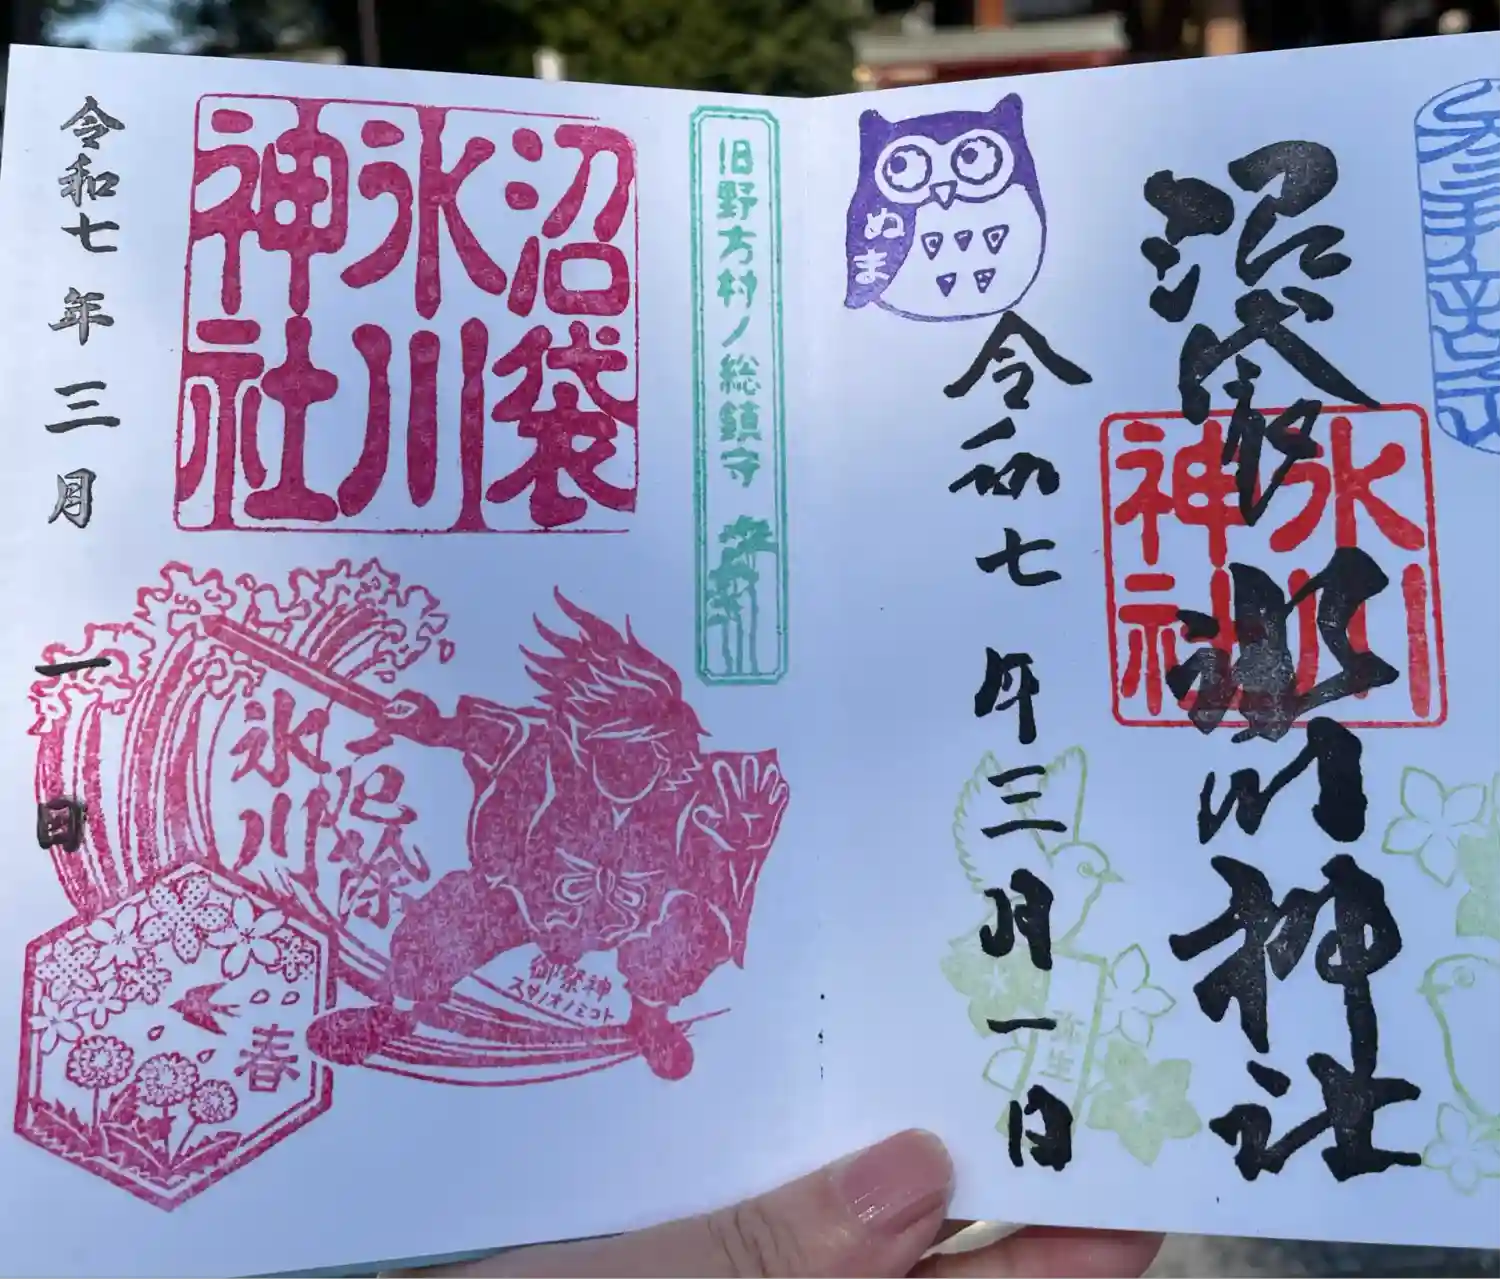 沼袋
氷川
神社
令和七年三月一日
旧野方村ノ総鎮守
厄除
氷川
御祭神
スサノオノミコト
春
沼袋氷川神社
氷川
神社
令和七年三月一日
ぬま
弥生